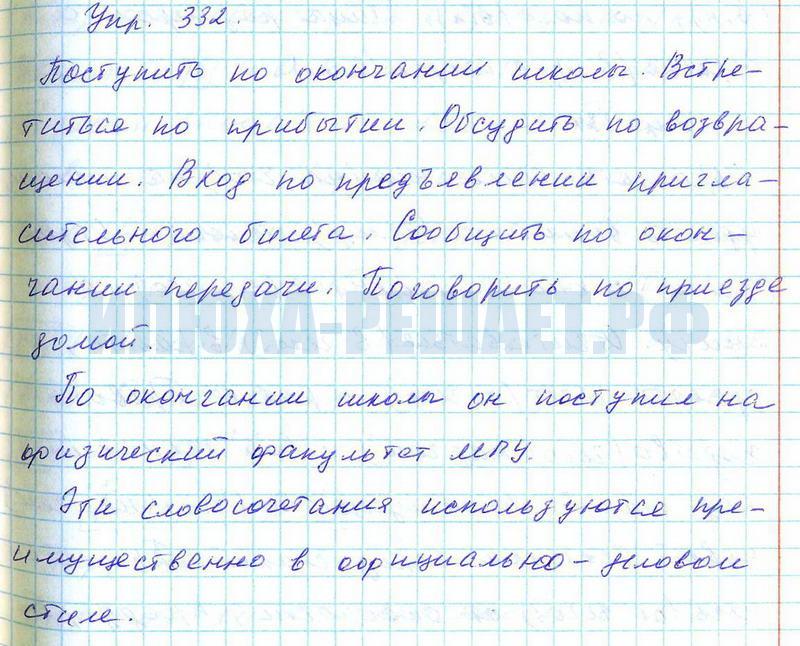 Упр. 332.
Поступить по окончании школы. Встре-
титься по прибытии. Обсудить по возвра-
щении. Вход по предъявлении пригла-
сительного билета. Сообщить по окон-
чании передачи. Поговорить по приезде
ИЛЮХА-РЕШАЕТ.РФ
домой.
По окончании школы он поступил на
физический факультет МГУ.
Эти словосочетания используются пре-
имущественно в официально-деловом
стиле.